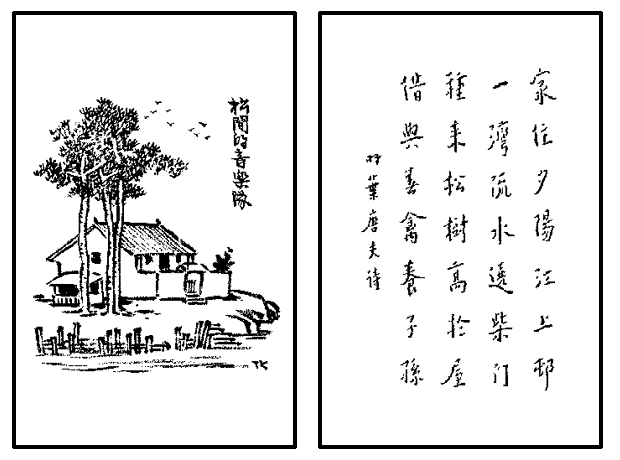 松間的音樂隊
TK
家住夕陽江上邨
一灣流水遶柴門
種來松樹高於屋
借與春禽養子孫
葉唐夫詩